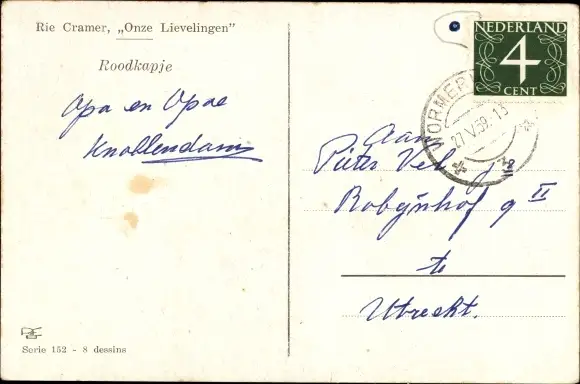 Rie Cramer, „Onze Lievelingen"
Roodkapje
Opa en Opoe
Knollendam
NEDERLAND
4
CENT
WORMER
27 V 59 - 13
Aan
Pieter Vel jr
Robijnhof 9 II
te
Utrecht.
Serie 152 - 8 dessins